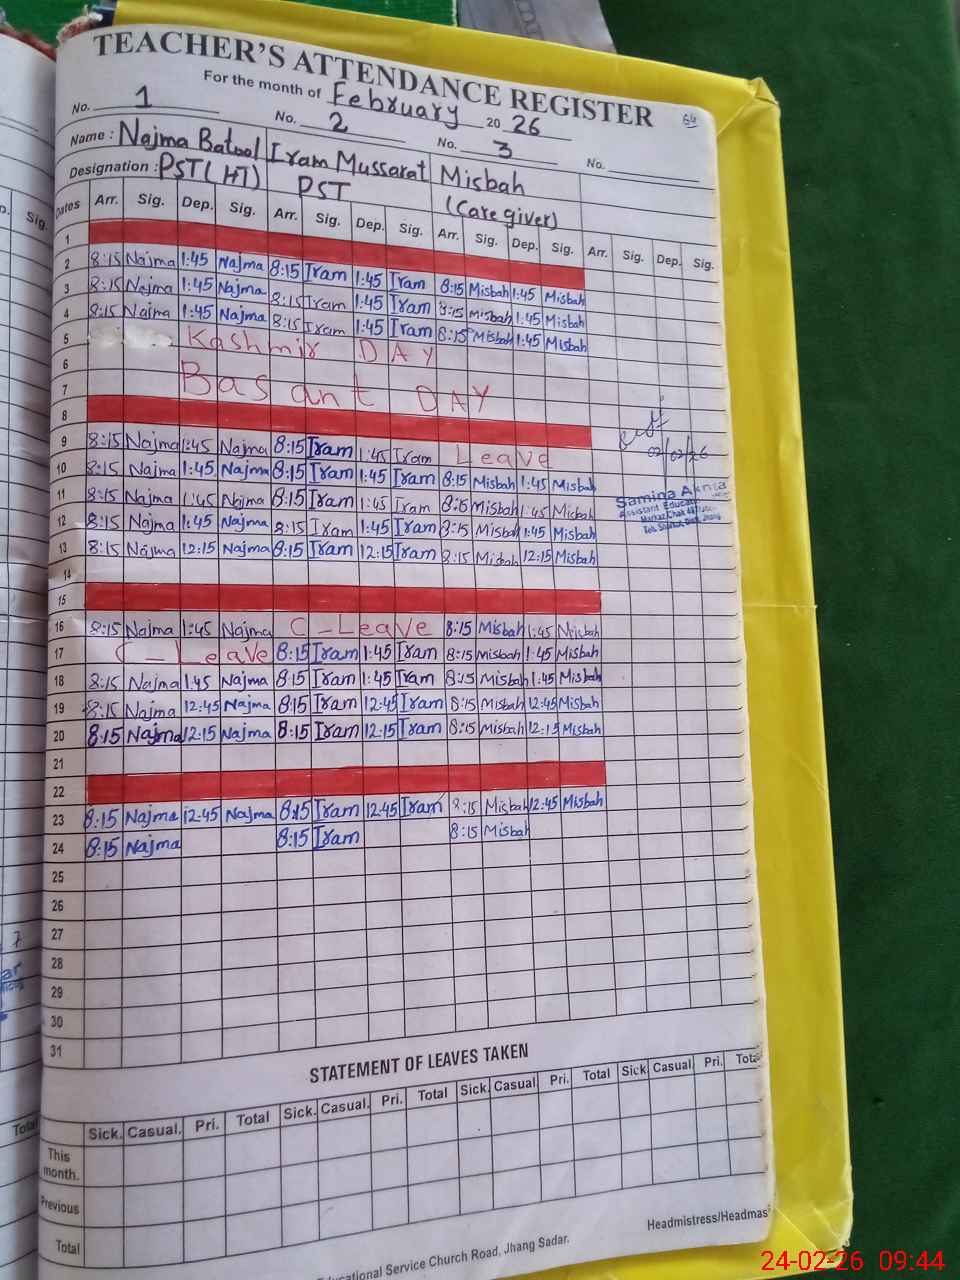 TEACHER'S ATTENDANCE REGISTER
For the month of February 2026
64
No. 1 No. 2 No. 3 No.
Name : Najma Batool Iram Mussarat Misbah
Designation : PST (HT) PST (Care giver)
Dates Arr. Sig. Dep. Sig. Arr. Sig. Dep. Sig. Arr. Sig. Dep. Sig. Arr. Sig. Dep. Sig.
1
2 8:15 Najma 1:45 Najma 8:15 Iram 1:45 Iram 8:15 Misbah 1:45 Misbah
3 8:15 Najma 1:45 Najma 8:15 Iram 1:45 Iram 8:15 Misbah 1:45 Misbah
4 8:15 Najma 1:45 Najma 8:15 Iram 1:45 Iram 8:15 Misbah 1:45 Misbah
5 Kashmir DAY
6
7 Basant DAY
8
9 8:15 Najma 1:45 Najma 8:15 Iram 1:45 Iram Leave
10 8:15 Najma 1:45 Najma 8:15 Iram 1:45 Iram 8:15 Misbah 1:45 Misbah
11 8:15 Najma 1:45 Najma 8:15 Iram 1:45 Iram 8:15 Misbah 1:45 Misbah
12 8:15 Najma 1:45 Najma 8:15 Iram 1:45 Iram 8:15 Misbah 1:45 Misbah
13 8:15 Najma 12:15 Najma 8:15 Iram 12:15 Iram 8:15 Misbah 12:15 Misbah
14
15
16 8:15 Najma 1:45 Najma C-Leave 8:15 Misbah 1:45 Misbah
17 C-Leave 8:15 Iram 1:45 Iram 8:15 Misbah 1:45 Misbah
18 8:15 Najma 1:45 Najma 8:15 Iram 1:45 Iram 8:15 Misbah 1:45 Misbah
19 8:15 Najma 12:45 Najma 8:15 Iram 12:45 Iram 8:15 Misbah 12:45 Misbah
20 8:15 Najma 12:15 Najma 8:15 Iram 12:15 Iram 8:15 Misbah 12:15 Misbah
21
22
23 8:15 Najma 12:45 Najma 8:15 Iram 12:45 Iram 8:15 Misbah 12:45 Misbah
24 8:15 Najma 8:15 Iram 8:15 Misbah
25
26
27
28
29
30
31
02/02/26
Samina
Assistant Educati
Markaz Chak
STATEMENT OF LEAVES TAKEN
Sick. Casual. Pri. Total Sick. Casual. Pri. Total Sick. Casual. Pri. Total Sick. Casual. Pri. Tota
This month.
Previous
Total
Headmistress/Headmas
ucational Service Church Road, Jhang Sadar.
Sig.
Total
24-02-26 09:44